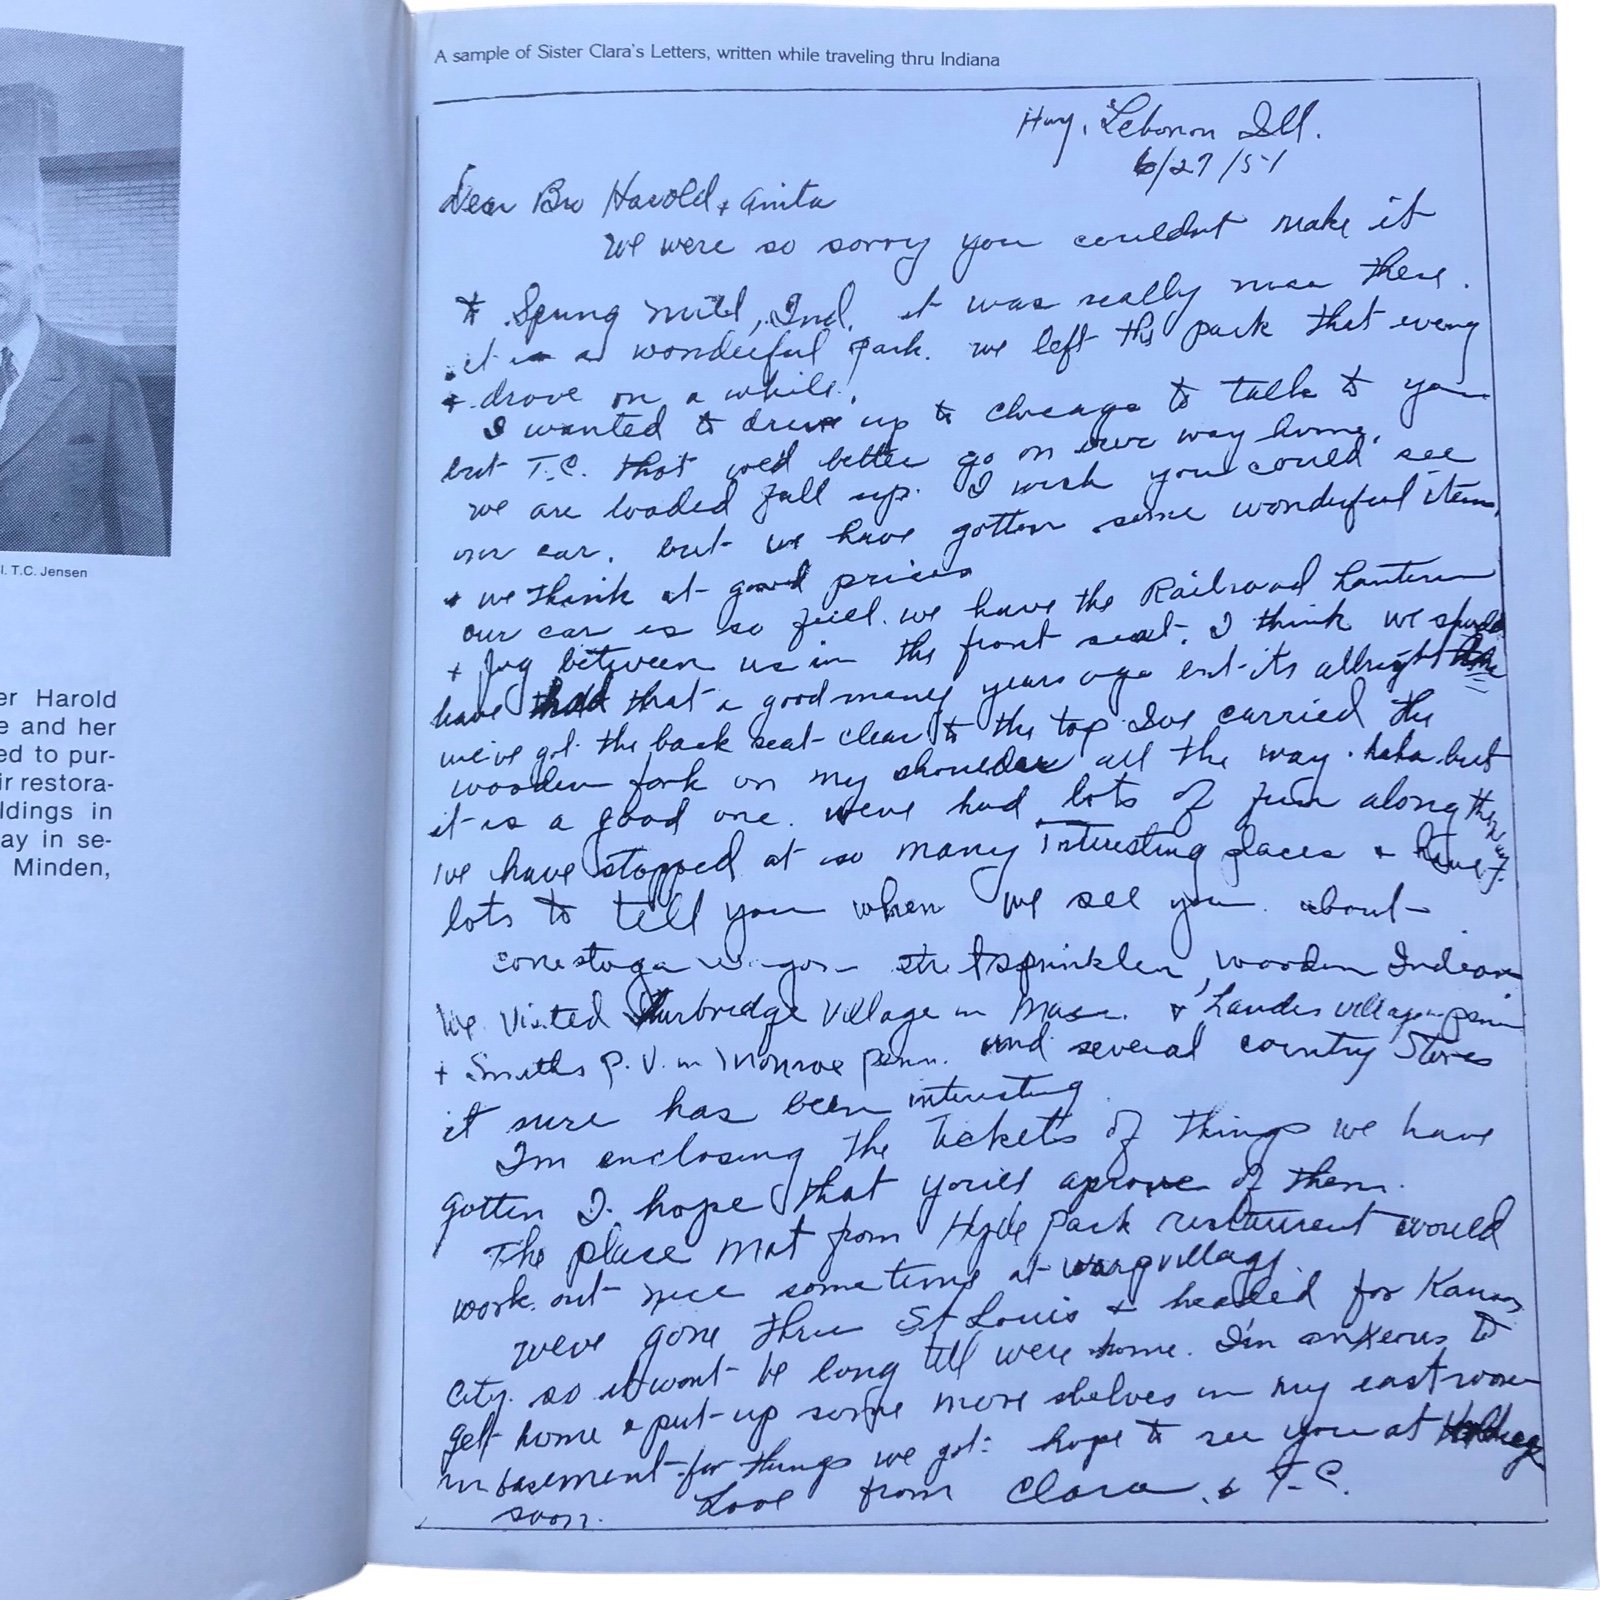 l. T.C. Jensen
er Harold
e and her
ed to pur-
ir restora-
ldings in
ay in se-
Minden,
A sample of Sister Clara's Letters, written while traveling thru Indiana
Hwy, Lebonon Ill.
6/27/51
Dear Bro Harold & Anita
We were so sorry you couldnt make it
to Spring Mill, Ind. it was really nice there.
it is a wonderful park. we left the park that eveng
+ drove on a while.
I wanted to drive up to Chicago to talk to you
but T.C. thot we'd better go on our way home.
we are loaded full up. I wish you could see
our car. but we have gotten some wonderful items,
+ we think at good prices
our car is so full. we have the Railroad Lantern
+ Jug between us in the front seat. I think we should
have had that a good many years ago but its allright
we've got the back seat clear to the top I've carried the
wooden fork on my shoulder all the way. haha but
it is a good one. weve had lots of fun along the way.
we have stopped at so many interesting places + have
lots to tell you when we see you. about
conestoga wagon street sprinkler, wooden Indian
We visited Sturbridge Village in Mass. + Landes village penn
+ Smiths P.V. in Monroe Penn. and several country Stores
it sure has been interesting.
I'm enclosing the tickets of things we have
gotten I hope that you'll aprove of them.
The place mat from Hyde Park resturent would
work out nice sometime at village.
weve gone thru St Louis + headed for Kansas
City. so it wont be long till were home. I'm anxious to
get home & put up some more shelves in my east room
in basement for things we got. hope to see you at Holdrege
soon. Love from Clara & T.C.